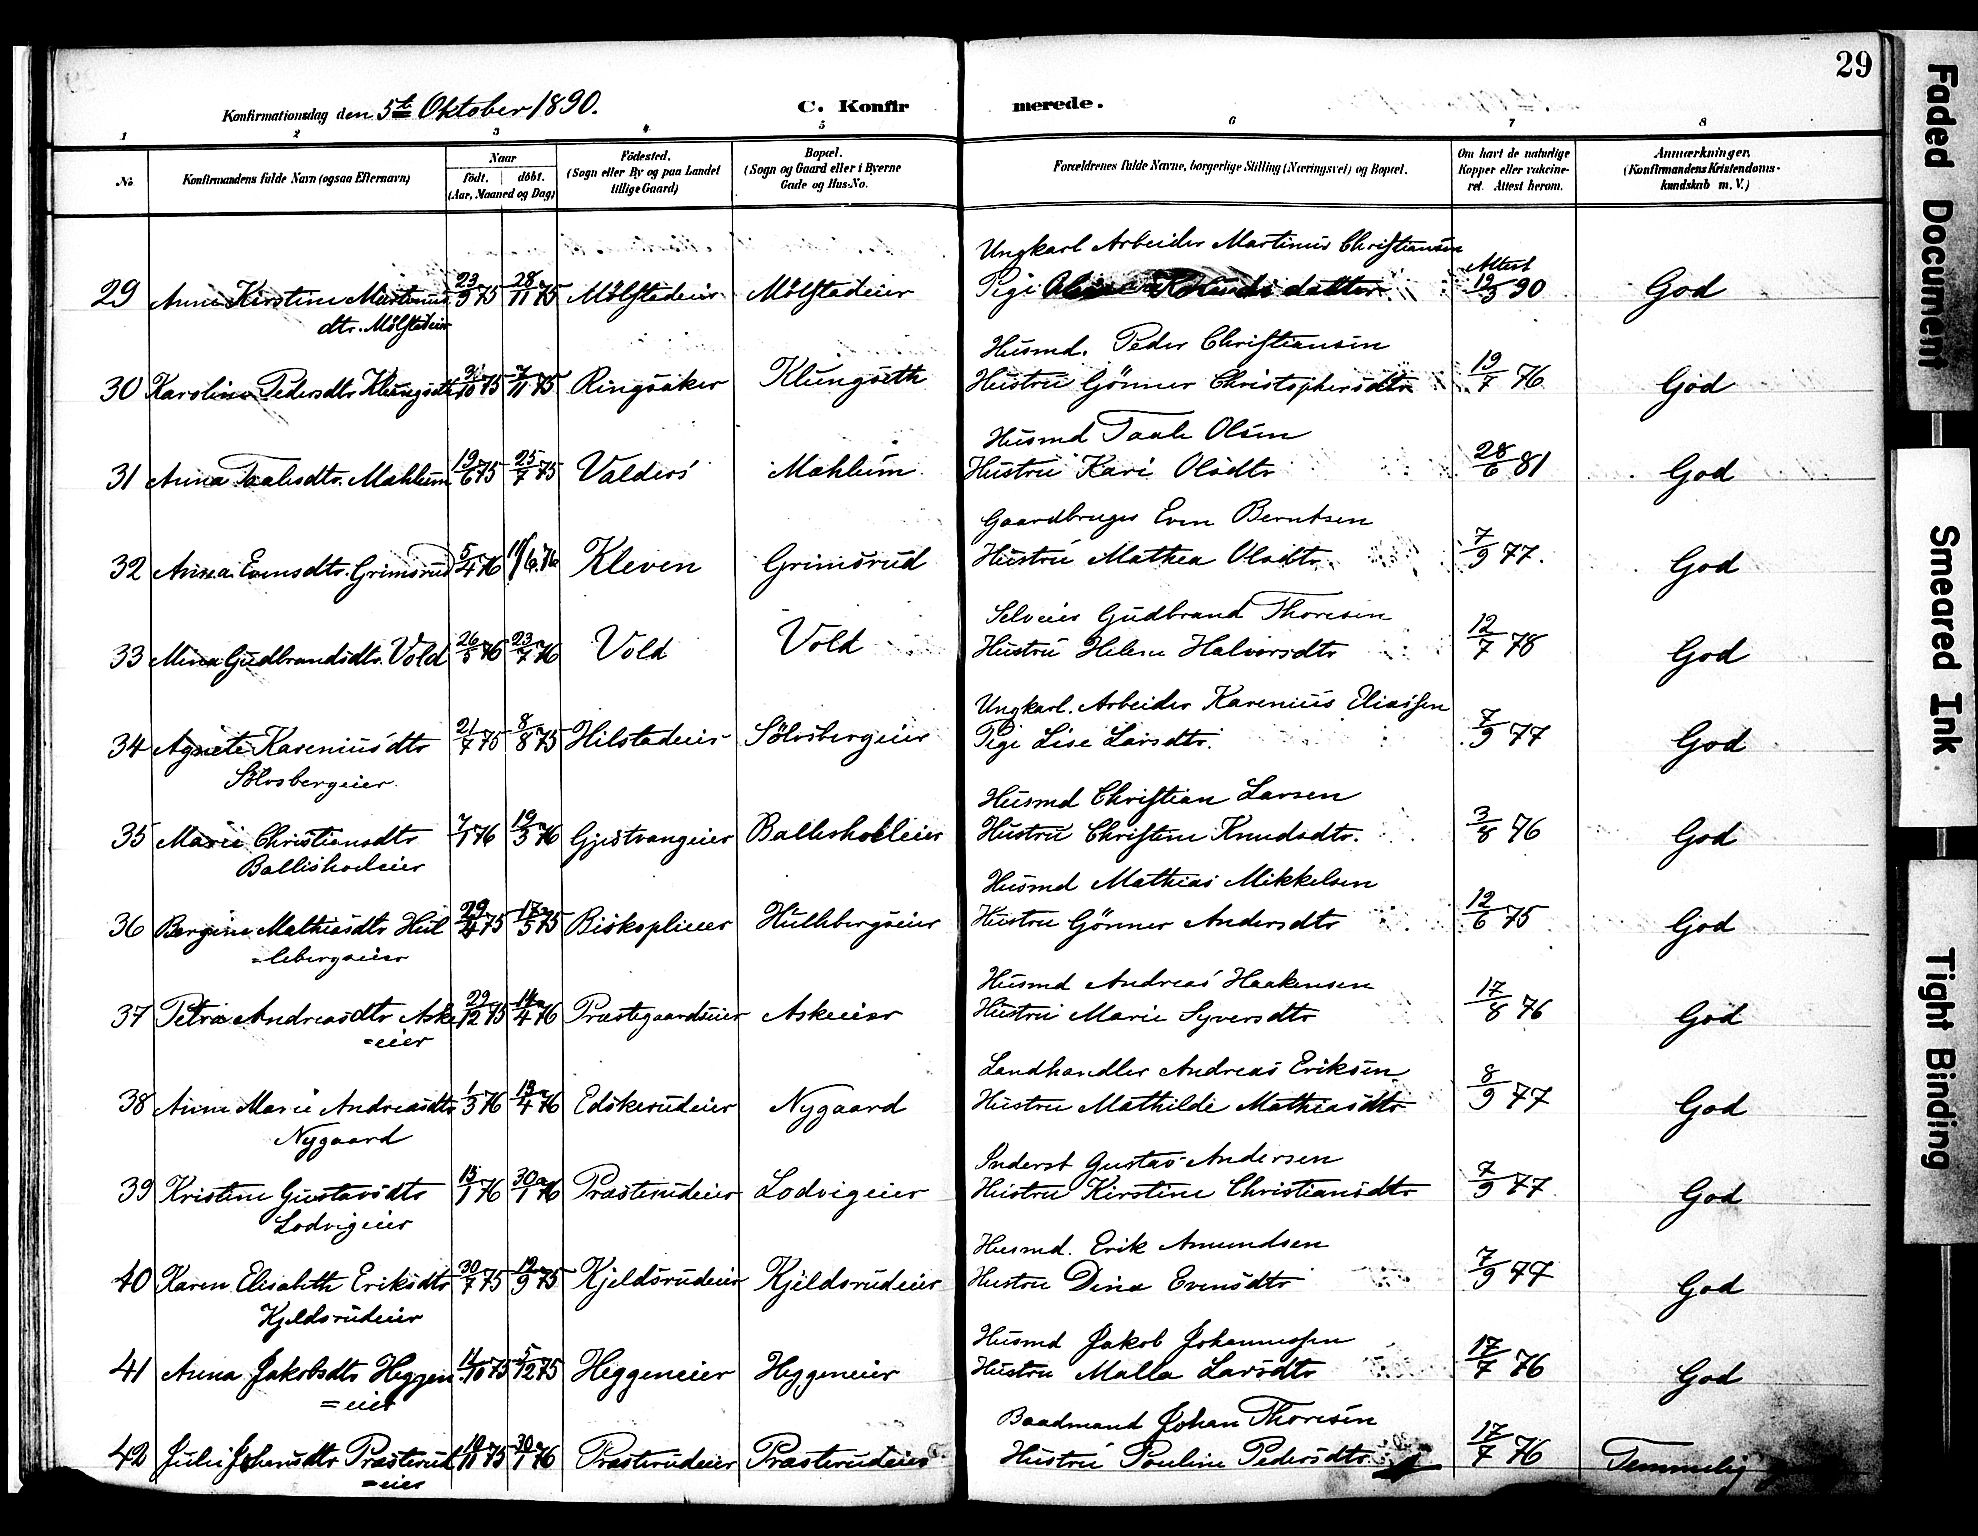 29
Konfirmationsdag den 5te Oktober 1890.
C. Konfirmerede.
1 2 3 4 5 6 7 8
No
Konfirmandens fulde Navn (ogsaa Efternavn)
Naar
födt. döbt.
(Aar, Maaned og Dag)
Födested.
(Sogn eller By og paa Landet
tillige Gaard)
Bopæl.
(Sogn og Gaard eller i Byerne
Gade og Hus-No.
Forældrenes fulde Navne, borgerlige Stilling (Næringsvei) og Bopæl.
Om havt de naturlige
Kopper eller vakcine-
ret. Attest herom.
Anmærkninger.
(Konfirmandens Kristendoms-
kundskab m. V.)
Ungkarl Arbeider Martinus Christiansen
29 Anne Kirstine Martinus 23/9 75 28/11 75 Mölstadeier Mölstadeier Pige datter Attest 12/9 90 God
dtr. Mölstadeier
Husmd. Peder Christiansen
30 Karoline Pedersdtr Klungseth 3/10 75 7/11 75 Ringsaker Klungseth Hustru Gönner Christophersdtr 19/7 76 God
Husmd Taale Olsen
31 Anna Taalesdtr. Mæhlum 19/6 75 25/7 75 Valders Mæhlum Hustru Kari Olsdtr 28/6 81 God
Gaardbruger Even Berntsen
32 Anna Evensdtr. Grimsrud 5/4 76 11/6. 76 Kleven Grimsrud Hustru Mathea Olsdtr. 7/9 77. God
Selveier Gudbrand Thoresen
33 Mina Gudbrandsdtr. Vold 26/5 76 23/7 76 Vold Vold Hustru Helene Halvorsdtr 12/7 78 God
Ungkarl. Arbeider Karenius Eliassen
34 Agnete Kareniusdtr 21/7 75 8/8 75 Hilstadeier Sölvsbergeier Pige Lise Larsdtr. 7/9 77 God
Sölvsbergeier.
Husmd Christian Larsen
35 Marie Christiansdtr 7/1 76 19/3 76 Gjestvangeier Ballishoeleier Hustru Christine Knudsdtr. 3/8 76 God
Ballishoeleier
Husmd Mathias Mikkelsen
36 Bergine Mathiasdtr Hul 29/4 75 17/5 75 Biskoplieier Hullebergseier Hustru Gönner Andersdtr 12/6 75 God
=lebergseier
Husmd Andreas Haakensen
37 Petra Andreasdtr Aske 29/12 75 14/4 76 Præstegaardseier Askeeier Hustru Marie Syversdtr 17/8 76 God
=eier
Landhandler Andreas Eriksen
38 Anne Marie Andreasdtr 1/3 76 13/4 76 Edskerudeier Nygaard Hustru Mathilde Mathiasdtr 8/9 77 God
Nygaard
Inderst Gustav Andersen
39 Kristine Gustavsdtr 15/1 76 30/1 76 Præsterudeier Lodvigeier Hustru Kirstine Christiansdtr 7/9 77. God
Lodvigeier
Husmd. Erik Amundsen
40 Karen Elisabeth Eriksdtr 30/7 75 12/9 75 Kjeldsrudeier Kjeldsrudeier Hustru Dina Evensdtr 7/9 77 God
Kjeldsrudeier
Husmd Jakob Johannessen
41 Anna Jakobsdtr Heggen 11/10 75 5/12 75 Heggeneier Heggeneier Hustru Malla Larsdtr 17/7 76 God
=eier
Baadmand Johan Thoresen
42 Julie Johansdtr Præsterud 19/11 75 30/1 76 Præsterudeier Præsterudeier Hustru Pouline Pedersdtr 17/7 76 Temmelig
=eier
Faded Document
Smeared Ink
Tight Binding